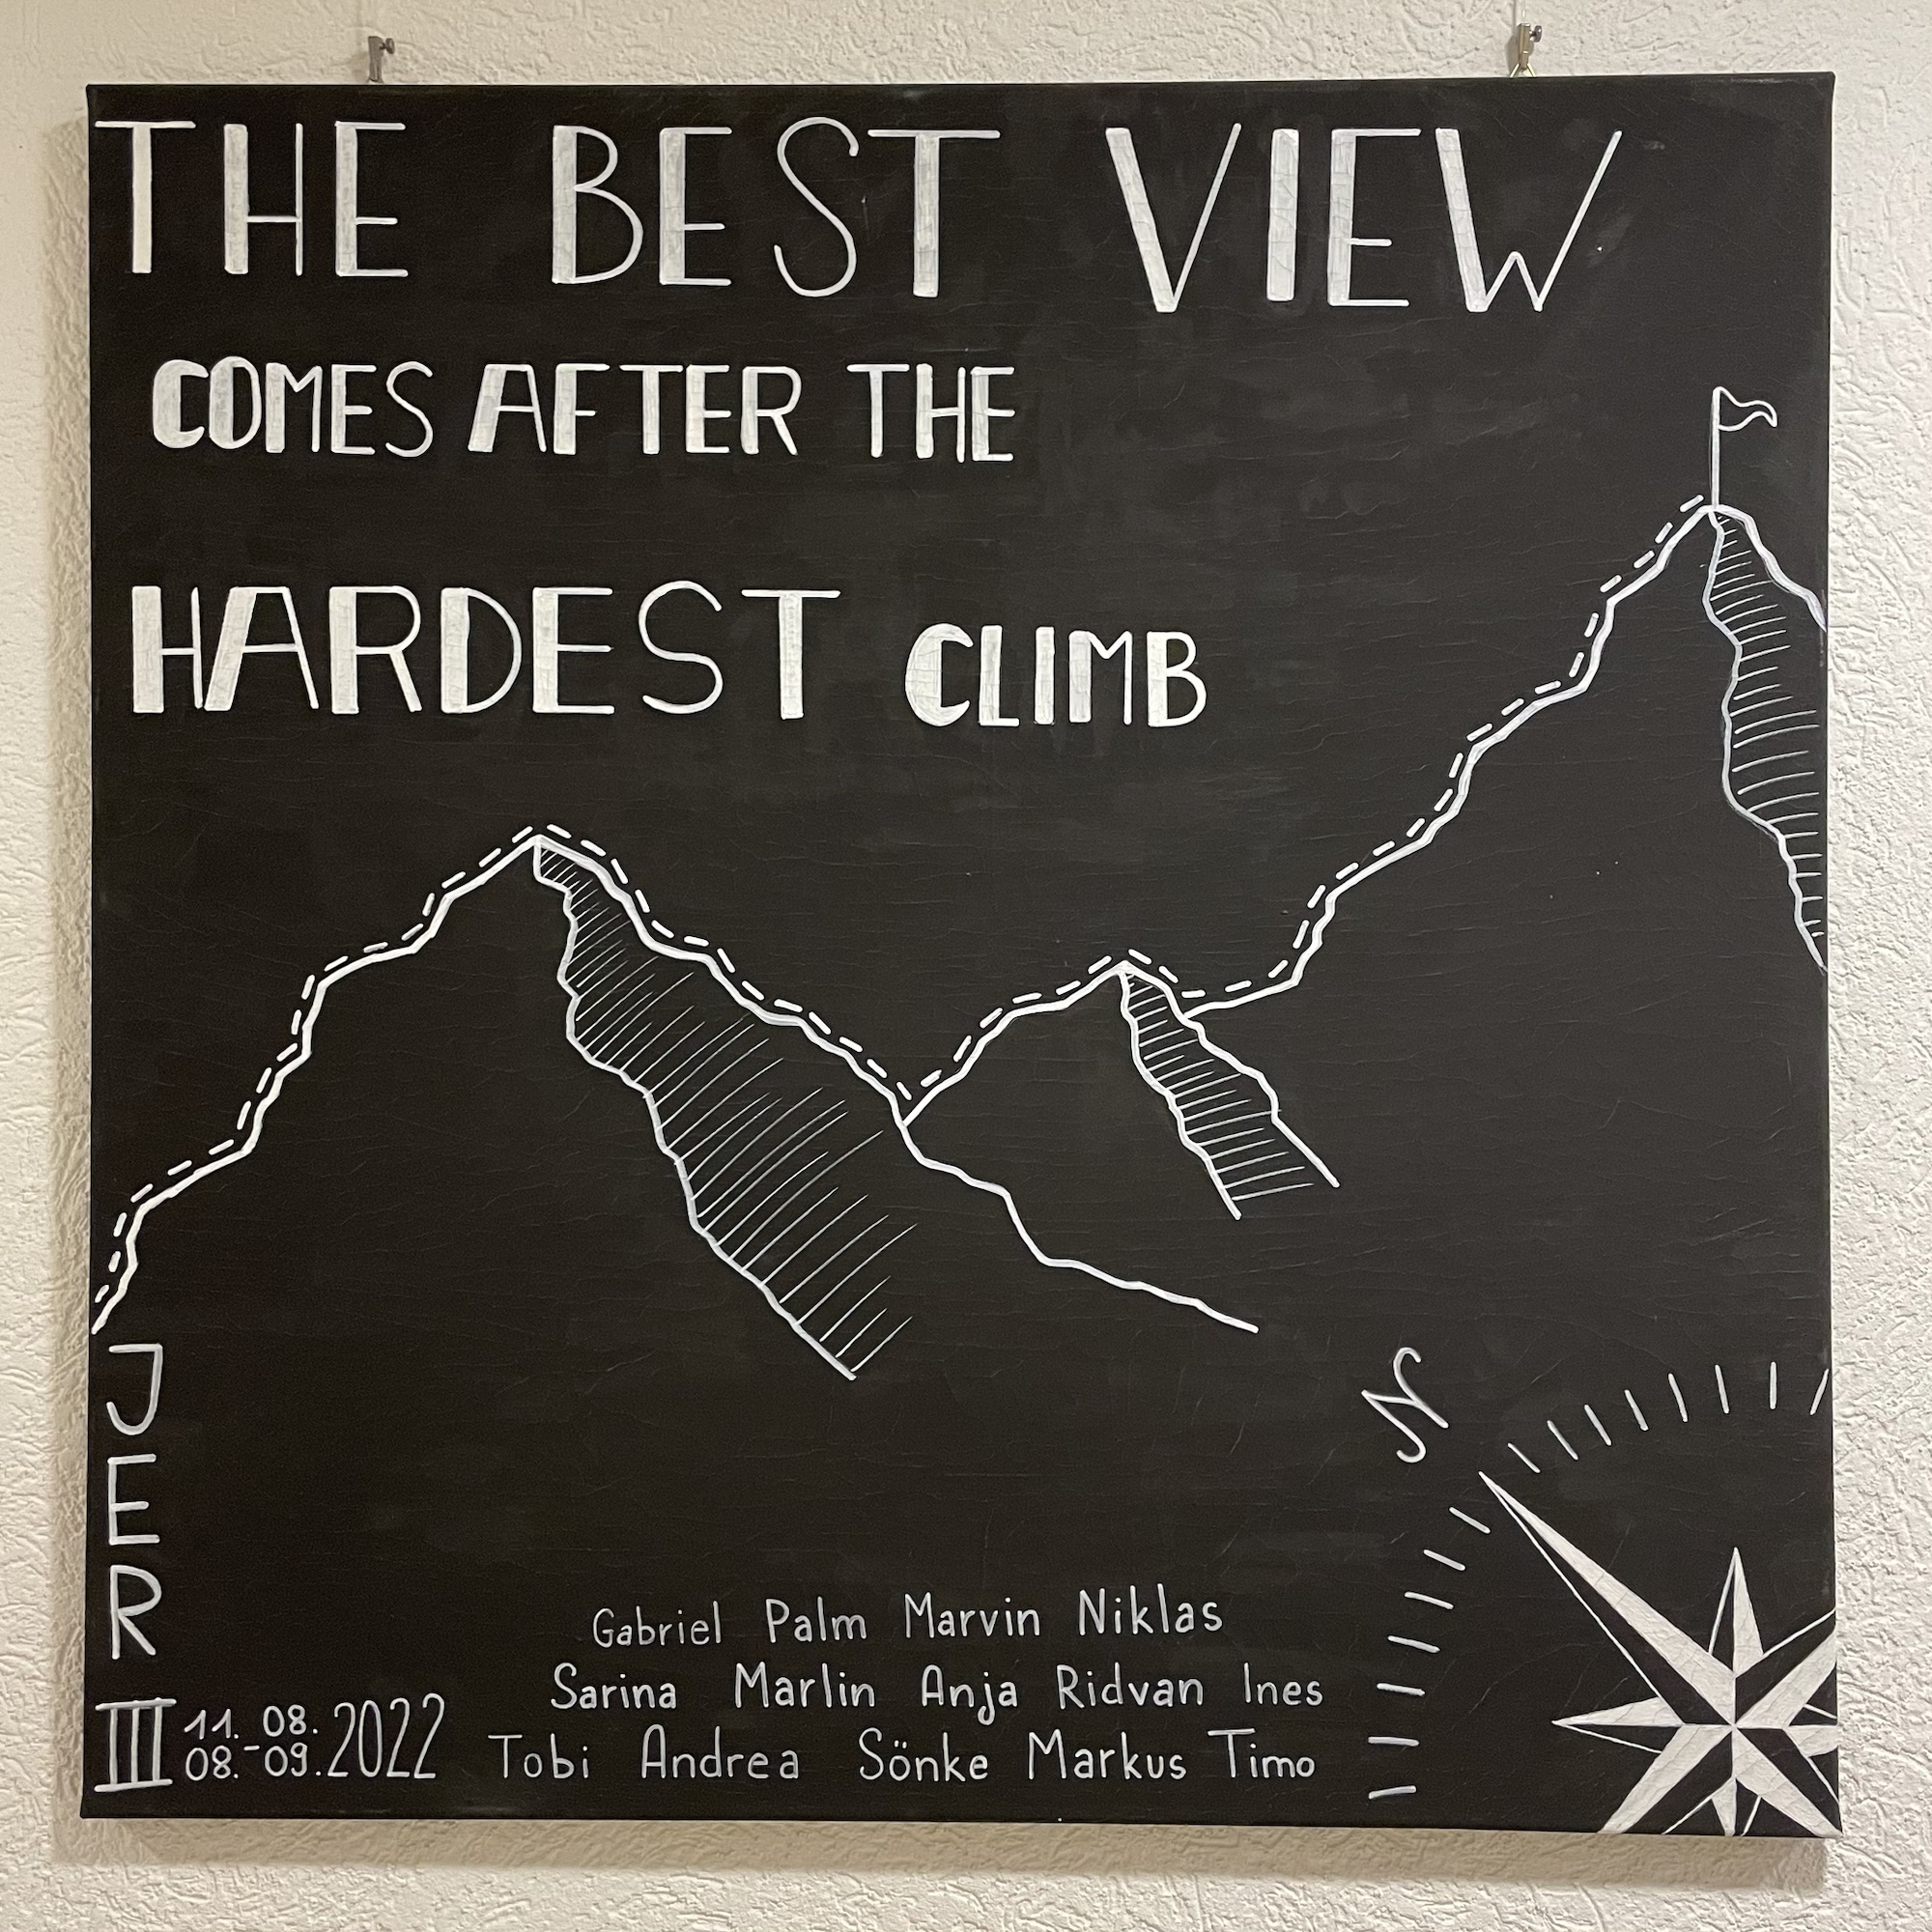 THE BEST VIEW
COMES AFTER THE
HARDEST CLIMB
N
J
E
R
III 11. 08.
08.-09. 2022
Gabriel Palm Marvin Niklas
Sarina Marlin Anja Ridvan Ines
Tobi Andrea Sönke Markus Timo